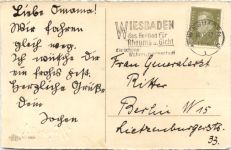 Liebe Omama!
Wir fahren
gleich weg.
Ich wünsche dir
ein frohes Fest.
Herzliche Grüße
dein
Jochen
WIESBADEN
das Heilbad für
Rheuma u. Gicht
Frau Generalarzt
Ritter
Berlin W 15
Lietzenburgerstr.
33.